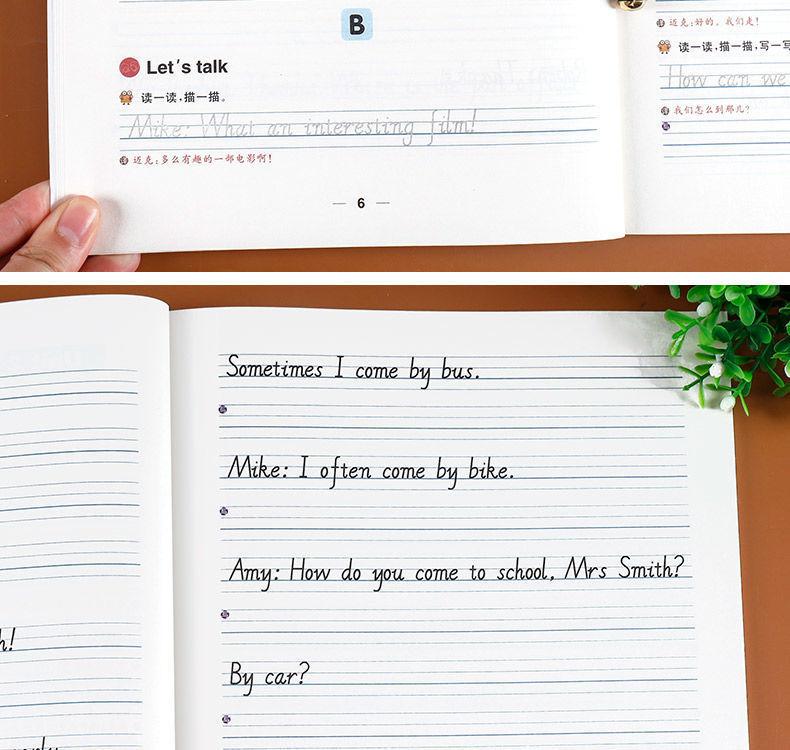 B
Let's talk
读一读，描一描。
Mike: What an interesting film!
译 迈克：多么有趣的一部电影啊！
— 6 —
译 迈克：好的。我们走！
读一读，描一描，写一写
How can we
译 我们怎么到那儿？
Sometimes I come by bus.
Mike: I often come by bike.
Amy: How do you come to school, Mrs Smith?
By car?
h!